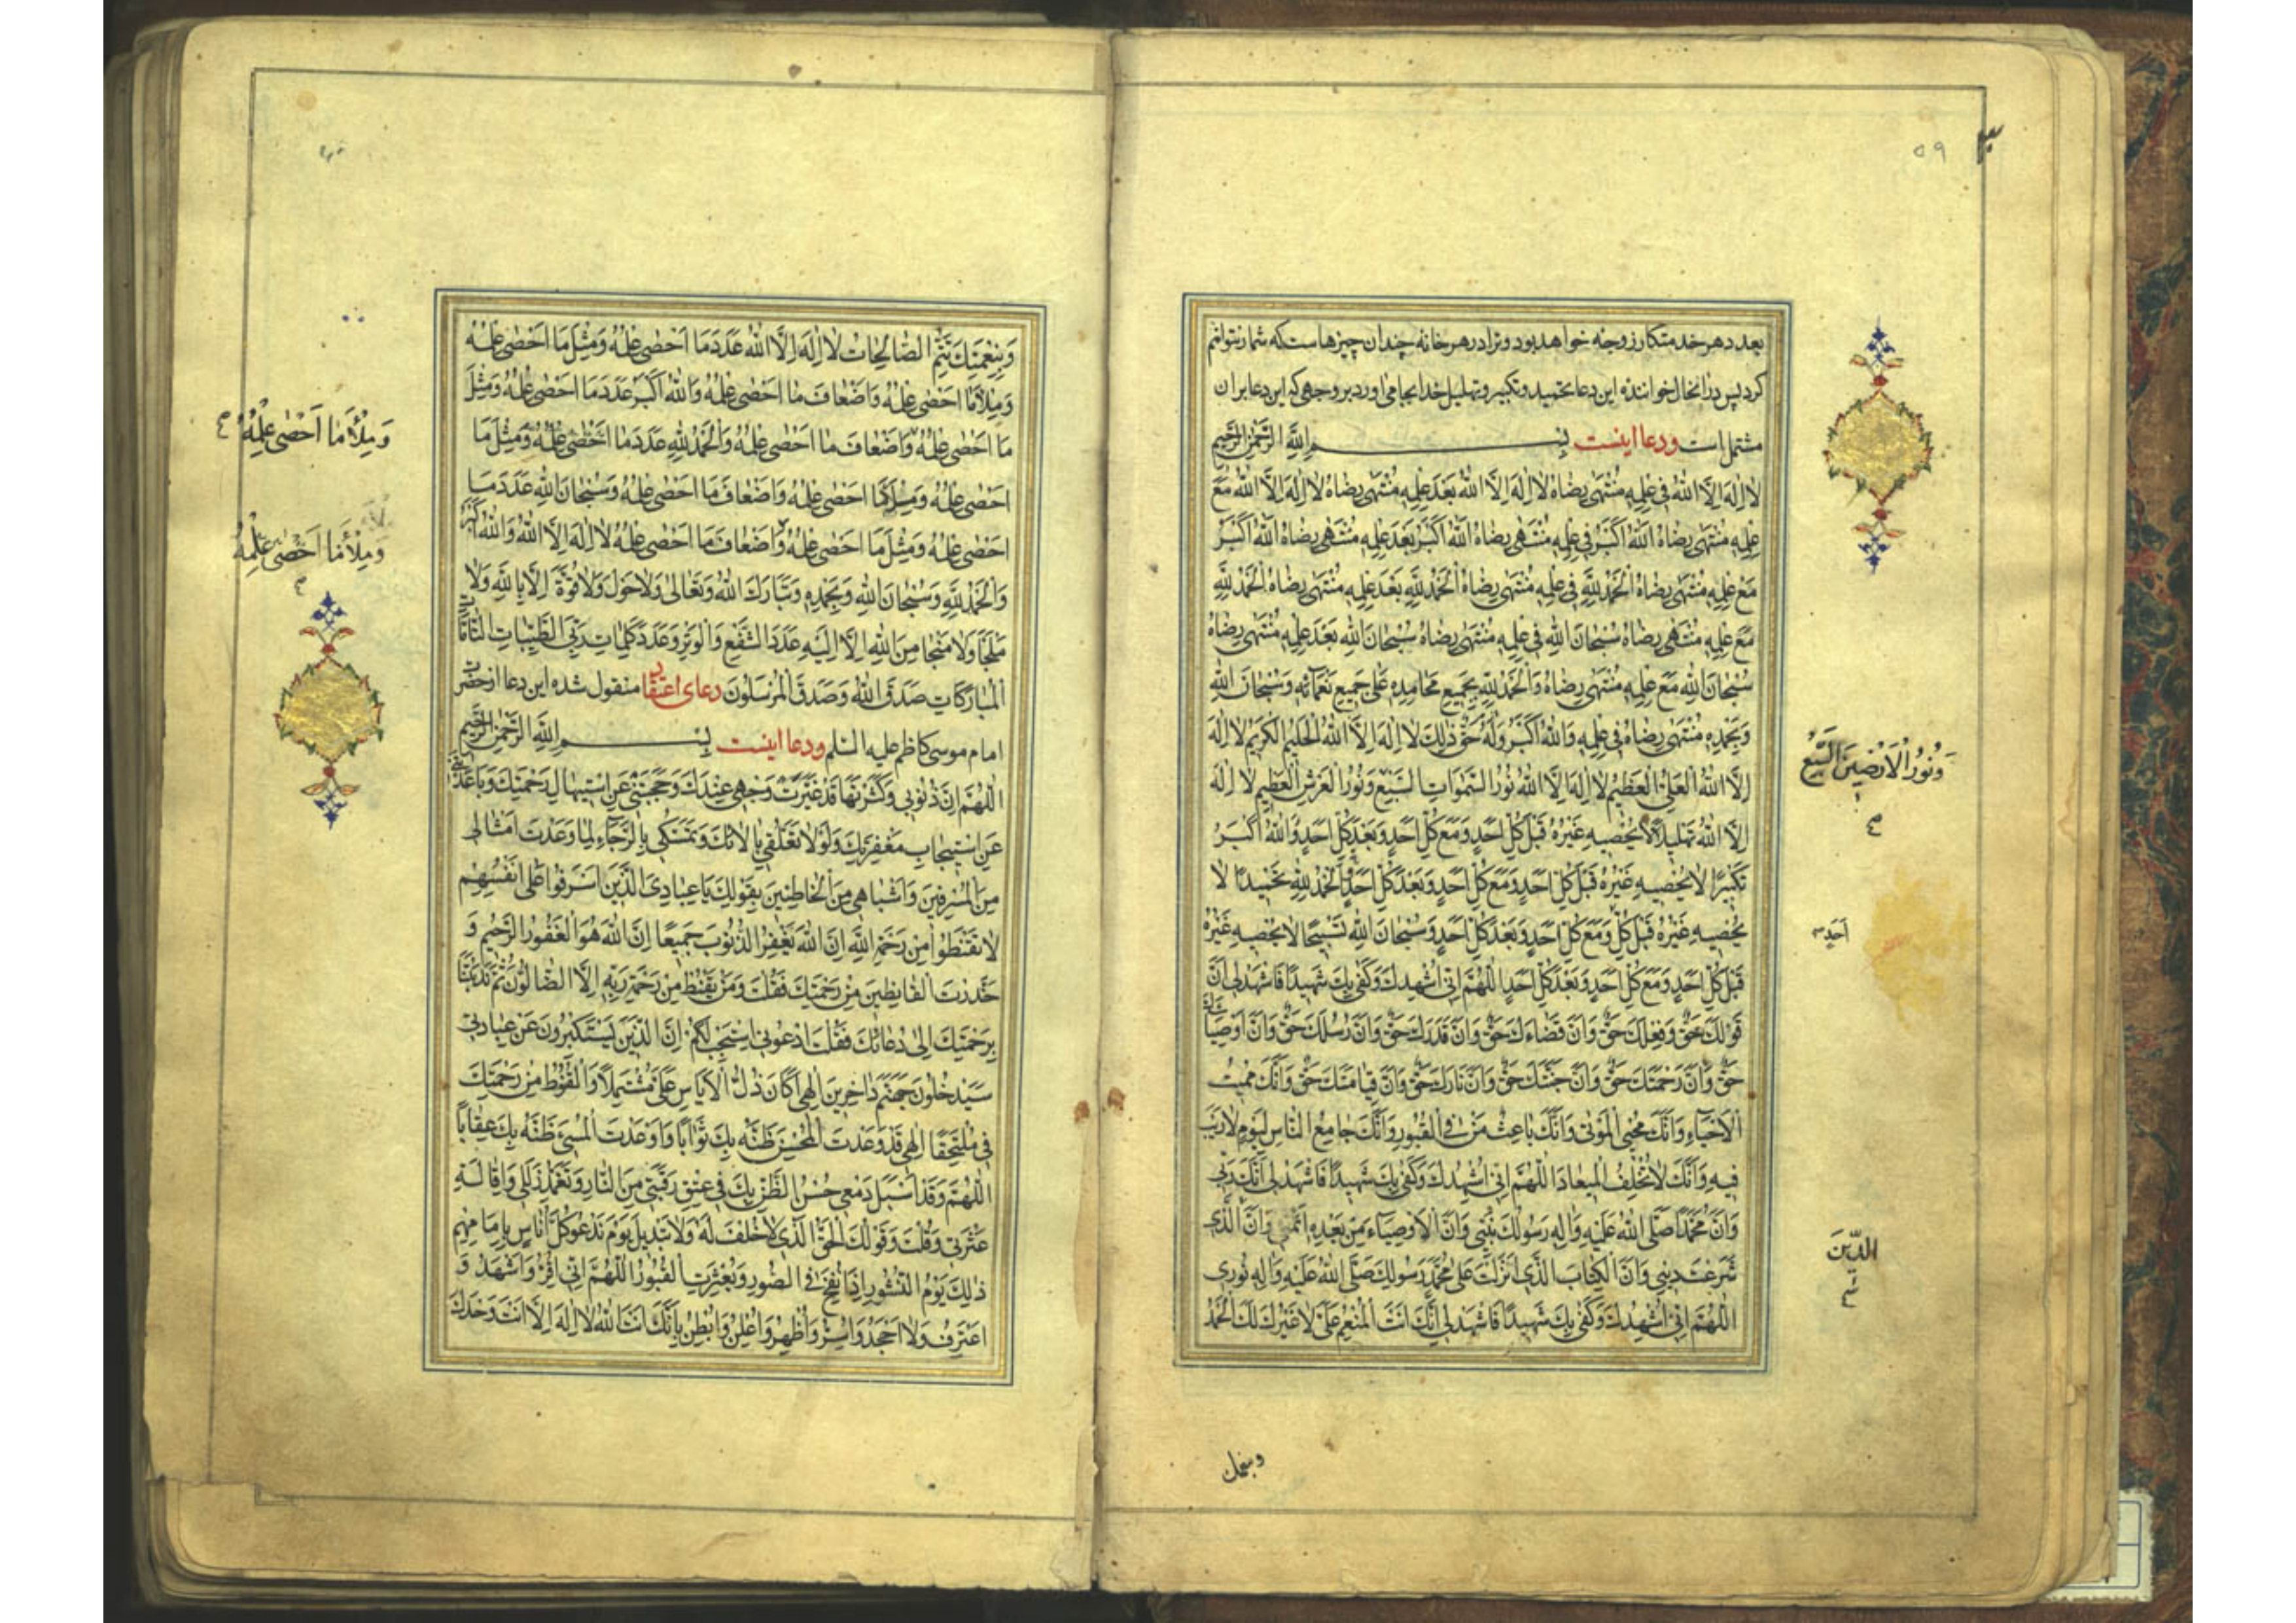 ۵۹
بعدد هر خدمتکار زوجه خواهد بود و ترا در هر خانه چندان چیزهاست که شمار نتوانم
کرد پس در انحال خواننده این دعا بتحمید و تکبیر و تهلیل خدا بجا می اورد بر وجهی که این دعا بران
مشتمل است ودعا اینست بِسْمِ اللهِ الرَّحْمٰنِ الرَّحِيمِ
لا اِلٰهَ اِلَّا اللهُ فى عِلْمِهِ مُنْتَهٰى رِضَاهُ لا اِلٰهَ اِلَّا اللهُ بَعْدَ عِلْمِهِ مُنْتَهٰى رِضَاهُ لا اِلٰهَ اِلَّا اللهُ مَعَ
عِلْمِهِ مُنْتَهٰى رِضَاهُ اللهُ اَكْبَرُ فى عِلْمِهِ مُنْتَهٰى رِضَاهُ اللهُ اَكْبَرُ بَعْدَ عِلْمِهِ مُنْتَهٰى رِضَاهُ اللهُ اَكْبَرُ
مَعَ عِلْمِهِ مُنْتَهٰى رِضَاهُ اَلْحَمْدُ لِلّٰهِ فى عِلْمِهِ مُنْتَهٰى رِضَاهُ اَلْحَمْدُ لِلّٰهِ بَعْدَ عِلْمِهِ مُنْتَهٰى رِضَاهُ اَلْحَمْدُ لِلّٰهِ
مَعَ عِلْمِهِ مُنْتَهٰى رِضَاهُ سُبْحَانَ اللهِ فى عِلْمِهِ مُنْتَهٰى رِضَاهُ سُبْحَانَ اللهِ بَعْدَ عِلْمِهِ مُنْتَهٰى رِضَاهُ
سُبْحَانَ اللهِ مَعَ عِلْمِهِ مُنْتَهٰى رِضَاهُ وَالْحَمْدُ لِلّٰهِ بِجَمِيعِ مَحَامِدِهِ عَلٰى جَمِيعِ نَعْمَائِهِ وَسُبْحَانَ اللهِ
وَبِحَمْدِهِ مُنْتَهٰى رِضَاهُ فى عِلْمِهِ وَاللهُ اَكْبَرُ وَلَهُ حَقٌّ ذٰلِكَ لا اِلٰهَ اِلَّا اللهُ الْحَلِيمُ الْكَرِيمُ لا اِلٰهَ
اِلَّا اللهُ الْعَلِىُّ الْعَظِيمُ لا اِلٰهَ اِلَّا اللهُ نُورُ السَّمٰوَاتِ السَّبْعِ وَنُورُ الْعَرْشِ الْعَظِيمِ لا اِلٰهَ
وَنُورُ الْاَرَضِينَ السَّبْعِ
اِلَّا اللهُ تَهْلِيلاً لا يُحْصِيهِ غَيْرُهُ قَبْلَ كُلِّ اَحَدٍ وَمَعَ كُلِّ اَحَدٍ وَبَعْدَ كُلِّ اَحَدٍ وَاللهُ اَكْبَرُ
تَكْبِيرًا لا يُحْصِيهِ غَيْرُهُ قَبْلَ كُلِّ اَحَدٍ وَمَعَ كُلِّ اَحَدٍ وَبَعْدَ كُلِّ اَحَدٍ وَالْحَمْدُ لِلّٰهِ تَحْمِيدًا لا
يُحْصِيهِ غَيْرُهُ قَبْلَ كُلِّ وَمَعَ كُلِّ اَحَدٍ وَبَعْدَ كُلِّ اَحَدٍ وَسُبْحَانَ اللهِ تَسْبِيحًا لا يُحْصِيهِ غَيْرُهُ
اَحَدٍ
قَبْلَ كُلِّ اَحَدٍ وَمَعَ كُلِّ اَحَدٍ وَبَعْدَ كُلِّ اَحَدٍ اَللّٰهُمَّ اِنّى اُشْهِدُكَ وَكَفٰى بِكَ شَهِيدًا فَاشْهَدْ لى اَنَّ
قَوْلَكَ حَقٌّ وَفِعْلَكَ حَقٌّ وَاَنَّ قَضَاءَكَ حَقٌّ وَاَنَّ قَدَرَكَ حَقٌّ وَاَنَّ رُسُلَكَ حَقٌّ وَاَنَّ اَوْصِيَائَكَ
حَقٌّ وَاَنَّ رَحْمَتَكَ حَقٌّ وَاَنَّ جَنَّتَكَ حَقٌّ وَاَنَّ نَارَكَ حَقٌّ وَاَنَّ قِيَامَتَكَ حَقٌّ وَاَنَّكَ مُمِيتُ
الْاَحْيَاءِ وَاَنَّكَ مُحْيِى الْمَوْتٰى وَاَنَّكَ بَاعِثُ مَنْ فِى الْقُبُورِ وَاَنَّكَ جَامِعُ النَّاسِ لِيَوْمٍ لا رَيْبَ
فِيهِ وَاَنَّكَ لا تُخْلِفُ الْمِيعَادَ اَللّٰهُمَّ اِنّى اُشْهِدُكَ وَكَفٰى بِكَ شَهِيدًا فَاشْهَدْ لى اَنَّكَ رَبّى
وَاَنَّ مُحَمَّدًا صَلَّى اللهُ عَلَيْهِ وَاٰلِهِ رَسُولَكَ نَبِيّى وَاَنَّ الْاَوْصِيَاءَ مِنْ بَعْدِهِ اَئِمَّتى وَاَنَّ الَّذى
الدِّينَ
شَرَعْتَ دِينى وَاَنَّ الْكِتَابَ الَّذى اَنْزَلْتَ عَلٰى مُحَمَّدٍ رَسُولِكَ صَلَّى اللهُ عَلَيْهِ وَاٰلِهِ نُورى
اَللّٰهُمَّ اِنّى اُشْهِدُكَ وَكَفٰى بِكَ شَهِيدًا فَاشْهَدْ لى اَنَّكَ اَنْتَ الْمُنْعِمُ عَلَىَّ لا غَيْرُكَ لَكَ الْحَمْدُ
وبنعمتك
وَبِنِعْمَتِكَ تَتِمُّ الصَّالِحَاتُ لا اِلٰهَ اِلَّا اللهُ عَدَدَ مَا اَحْصٰى عِلْمُهُ وَمِثْلَ مَا اَحْصٰى عِلْمُهُ
وَمِلْأَ مَا اَحْصٰى عِلْمُهُ وَاَضْعَافَ مَا اَحْصٰى عِلْمُهُ وَاللهُ اَكْبَرُ عَدَدَ مَا اَحْصٰى عِلْمُهُ وَمِثْلَ
مَا اَحْصٰى عِلْمُهُ وَاَضْعَافَ مَا اَحْصٰى عِلْمُهُ وَالْحَمْدُ لِلّٰهِ عَدَدَ مَا اَحْصٰى عِلْمُهُ وَمِثْلَ مَا
وَمِلْأَ مَا اَحْصٰى عِلْمُهُ
اَحْصٰى عِلْمُهُ وَمِلْأَ مَا اَحْصٰى عِلْمُهُ وَاَضْعَافَ مَا اَحْصٰى عِلْمُهُ وَسُبْحَانَ اللهِ عَدَدَ مَا
اَحْصٰى عِلْمُهُ وَمِثْلَ مَا اَحْصٰى عِلْمُهُ وَاَضْعَافَ مَا اَحْصٰى عِلْمُهُ لا اِلٰهَ اِلَّا اللهُ وَاللهُ اَكْبَرُ
وَمِلْأَ مَا اَحْصٰى عِلْمُهُ
وَالْحَمْدُ لِلّٰهِ وَسُبْحَانَ اللهِ وَبِحَمْدِهِ وَتَبَارَكَ اللهُ وَتَعَالٰى وَلا حَوْلَ وَلا قُوَّةَ اِلَّا بِاللهِ وَلا
مَلْجَأَ وَلا مَنْجَا مِنَ اللهِ اِلَّا اِلَيْهِ عَدَدَ الشَّفْعِ وَالْوَتْرِ وَعَدَدَ كَلِمَاتِ رَبِّى الطَّيِّبَاتِ التَّامَّاتِ
الْمُبَارَكَاتِ صَدَقَ اللهُ وَصَدَقَ الْمُرْسَلُونَ دعای اعتقاد منقول شده این دعا از حضرت
امام موسی کاظم علیه السلم ودعا اینست بِسْمِ اللهِ الرَّحْمٰنِ الرَّحِيمِ
اَللّٰهُمَّ اِنَّ ذُنُوبى وَكَثْرَتَهَا قَدْ غَيَّرَتْ وَجْهى عِنْدَكَ وَحَجَبَتْنى عَنِ اسْتِيهَالِ رَحْمَتِكَ وَبَاعَدَتْنى
عَنِ اسْتِيجَابِ مَغْفِرَتِكَ وَلَوْلا تَعَلُّقى بِاٰلائِكَ وَتَمَسُّكى بِالرَّجَاءِ لِمَا وَعَدْتَ اَمْثَالى
مِنَ الْمُسْرِفِينَ وَاَشْبَاهى مِنَ الْخَاطِئِينَ بِقَوْلِكَ يَا عِبَادِىَ الَّذِينَ اَسْرَفُوا عَلٰى اَنْفُسِهِمْ
لا تَقْنَطُوا مِنْ رَحْمَةِ اللهِ اِنَّ اللهَ يَغْفِرُ الذُّنُوبَ جَمِيعًا اِنَّ اللهَ هُوَ الْغَفُورُ الرَّحِيمُ وَ
حَذَّرْتَ الْقَانِطِينَ مِنْ رَحْمَتِكَ فَقُلْتَ وَمَنْ يَقْنَطُ مِنْ رَحْمَةِ رَبِّهِ اِلَّا الضَّالُّونَ ثُمَّ نَدَبْتَنَا
بِرَحْمَتِكَ اِلٰى دُعَائِكَ فَقُلْتَ ادْعُونى اَسْتَجِبْ لَكُمْ اِنَّ الَّذِينَ يَسْتَكْبِرُونَ عَنْ عِبَادَتى
سَيَدْخُلُونَ جَهَنَّمَ دَاخِرِينَ اِلٰهى كَانَ ذُلُّ الْاِيَاسِ عَلَىَّ مُشْتَمِلاً وَالْقُنُوطُ مِنْ رَحْمَتِكَ
فى مُلْتَحِفًا اِلٰهى قَدْ وَعَدْتَ الْمُحْسِنَ ظَنَّهُ بِكَ ثَوَابًا وَاَوْعَدْتَ الْمُسِىءَ ظَنَّهُ بِكَ عِقَابًا
اَللّٰهُمَّ وَقَدْ اَسْبَلَ دَمْعى حُسْنُ الظَّنِّ بِكَ فى عِتْقِ رَقَبَتى مِنَ النَّارِ وَتَغَمُّدِ زَلَلى وَاِقَالَةِ
عَثْرَتى وَقُلْتَ وَقَوْلُكَ الْحَقُّ الَّذى لا خُلْفَ لَهُ وَلا تَبْدِيلَ يَوْمَ نَدْعُو كُلَّ اُنَاسٍ بِاِمَامِهِمْ
ذٰلِكَ يَوْمُ النُّشُورِ اِذَا نُفِخَ فِى الصُّورِ وَبُعْثِرَتِ الْقُبُورُ اَللّٰهُمَّ اِنّى اُقِرُّ وَاَشْهَدُ وَ
اَعْتَرِفُ وَلا اَجْحَدُ وَاُسِرُّ وَاُظْهِرُ وَاُعْلِنُ وَاُبْطِنُ بِاَنَّكَ اَنْتَ اللهُ لا اِلٰهَ اِلَّا اَنْتَ وَحْدَكَ